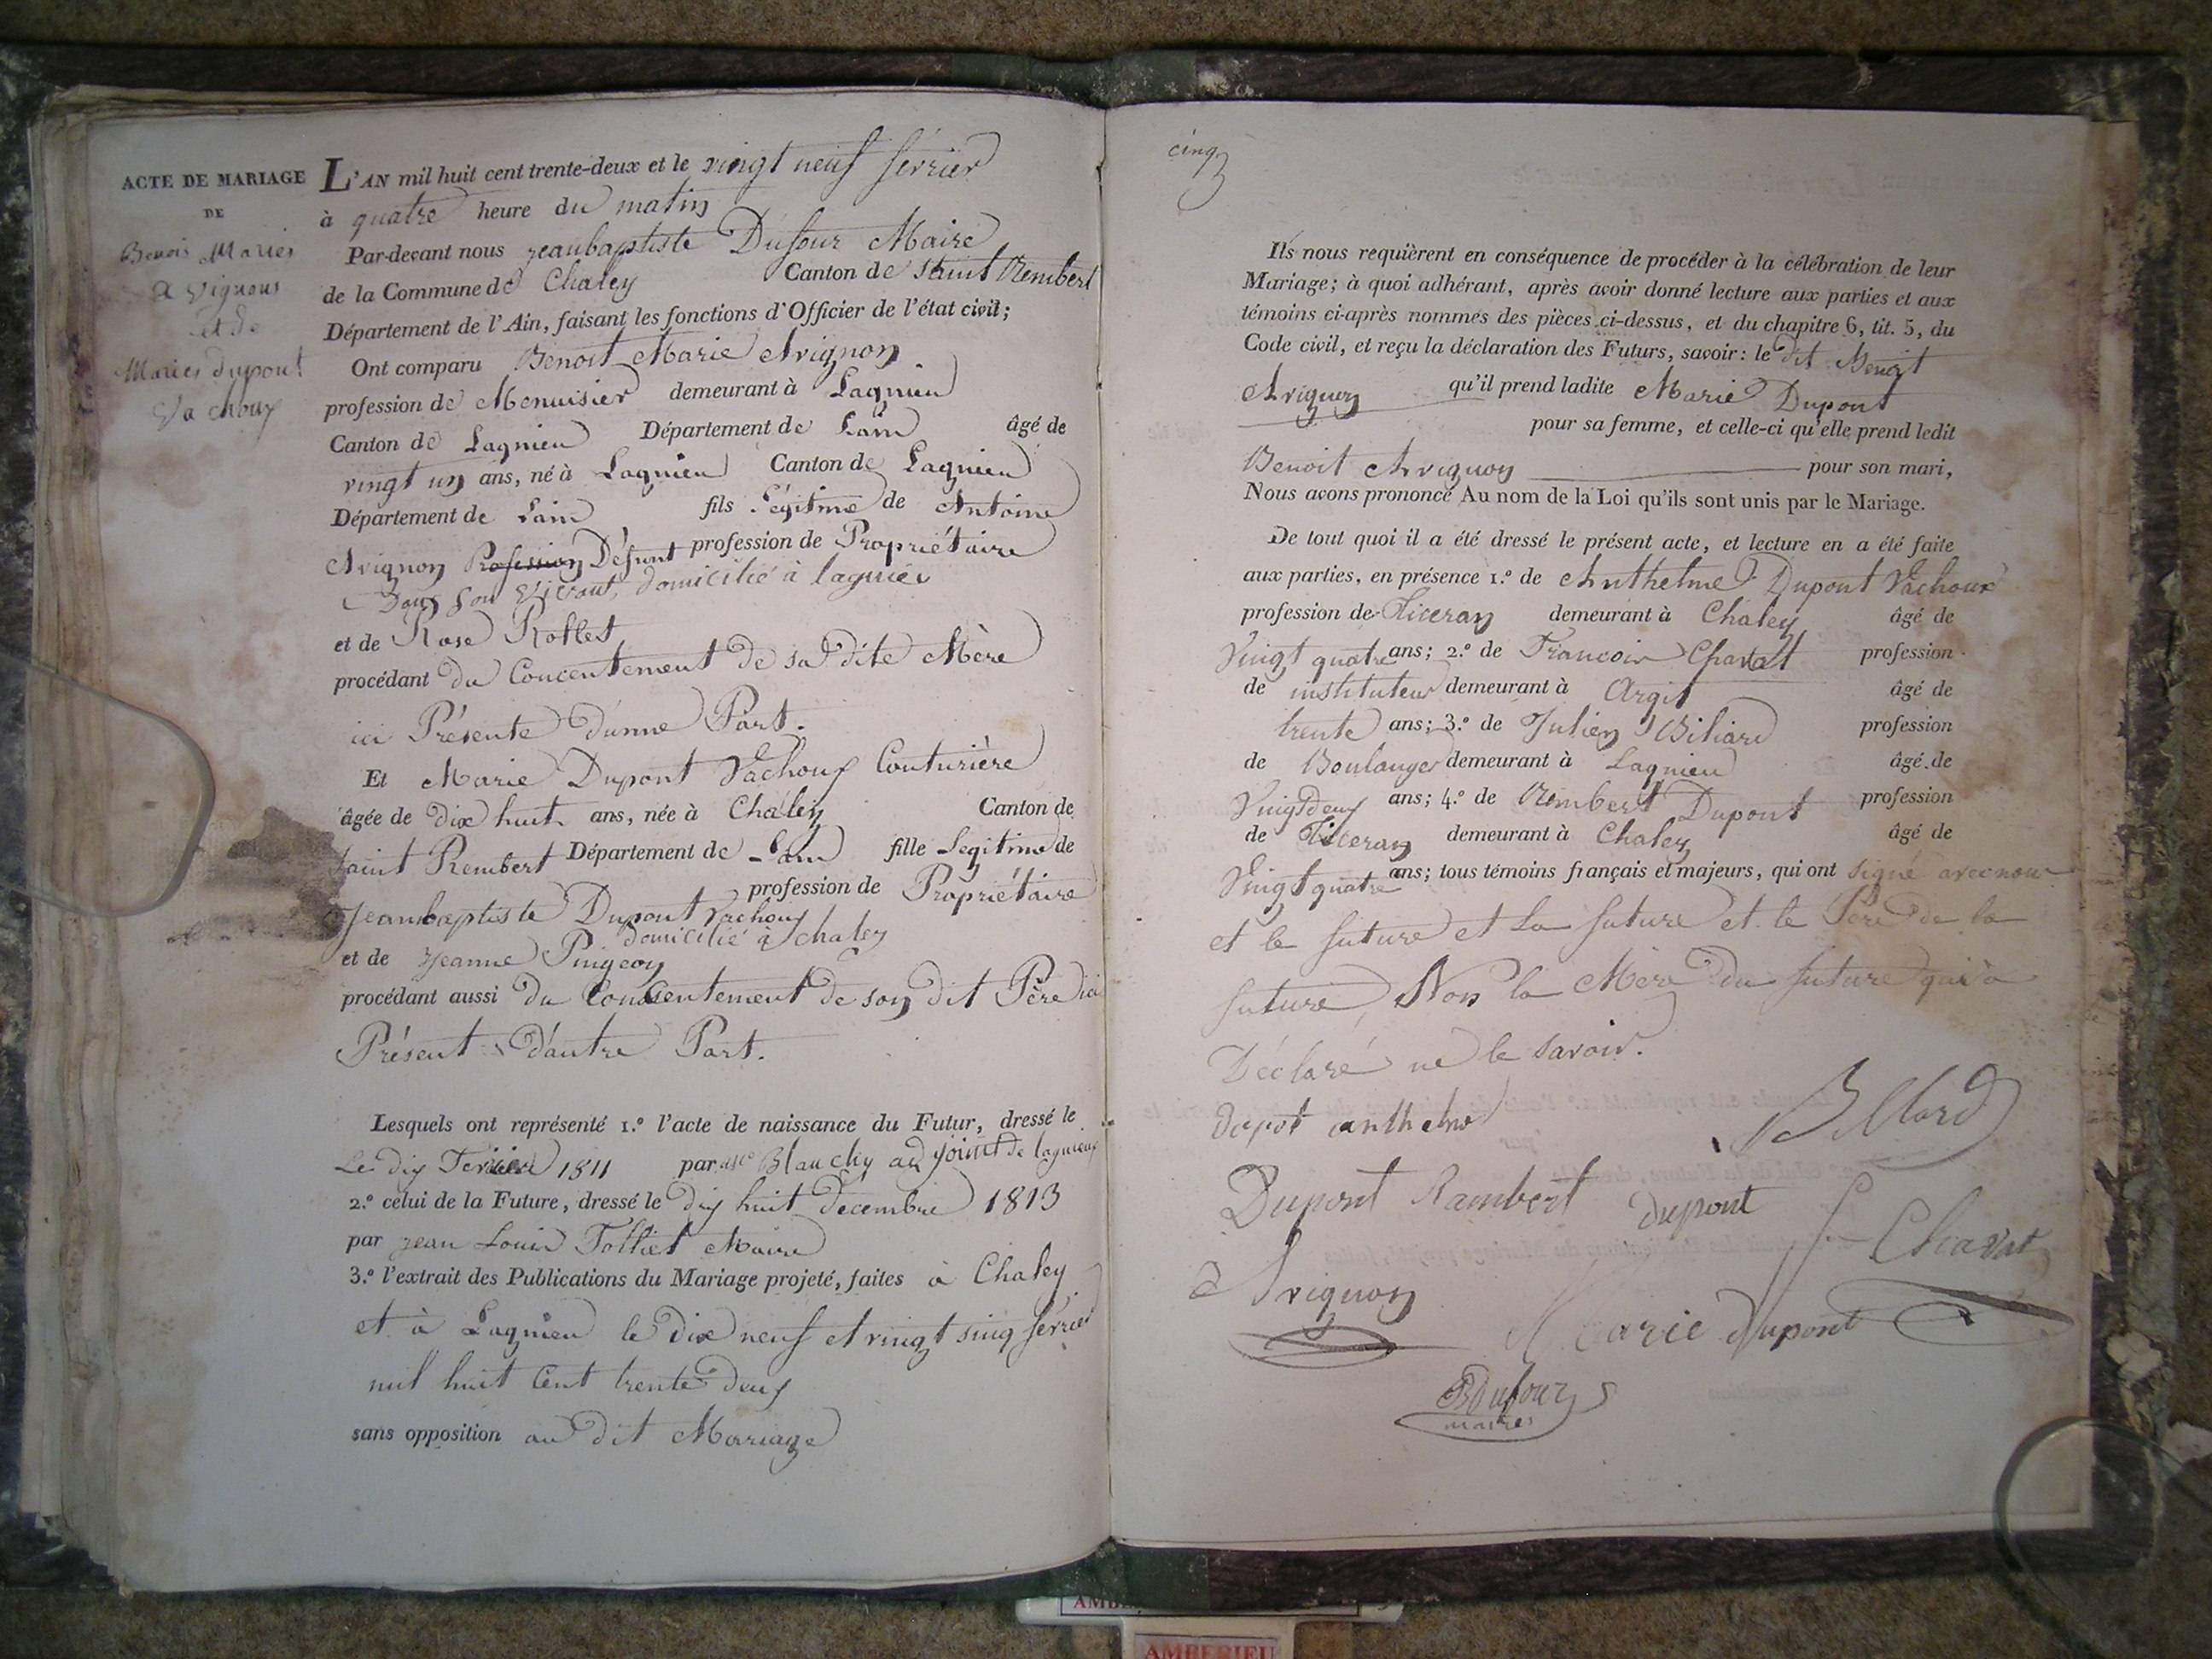 ACTE DE MARIAGE
DE
Benois Maries
a vignons
et de
Maries dupont
Vachouy
L'AN mil huit cent trente-deux et le vingt neuf ferrier
à quatre heure du matin
Par-devant nous jeanbaptiste Dufour Maire
de la Commune de Chaley Canton de Saint Rembert
Département de l'Ain, faisant les fonctions d'Officier de l'état civil;
Ont comparu Benoit Marie Avignon
profession de Menuisier demeurant à Lagnieu
Canton de Lagnieu Département de Lain âgé de
vingt un ans, né à Lagnieu Canton de Lagnieu
Département de Lain fils Légitime de Antoine
Avignon Profession Défunt profession de Propriétaire
Dans son vivant, domicilié à lagnieu
et de Rose Rollet
procédant du Concentement de sa dite Mère
ici Présente d'unne Part.
Et Marie Dupont Vachouy Couturière
âgée de dix huit ans, née à Chaley Canton de
saint Rembert Département de Lain fille Legitime de
Jeanbaptiste Dupont Vachouy profession de Propriétaire
domicilié à chaley
et de Jeanne Pingeon
procédant aussi du Consentement de son dit Père ici
Présent d'autre Part.
Lesquels ont représenté 1.º l'acte de naissance du Futur, dressé le
Le dix Fevrier 1811 par Blanchy adjoint de lagnieu
2.º celui de la Future, dressé le dix huit Decembre 1813
par jean Louis Tolliet Maire
3.º l'extrait des Publications du Mariage projeté, faites à Chaley
et à Lagnieu le dix neuf et vingt sinq ferrier
mil huit Cent trente deux
sans opposition au dit Marriage
cinq
Ils nous requièrent en conséquence de procéder à la célébration de leur
Mariage; à quoi adhérant, après avoir donné lecture aux parties et aux
témoins ci-après nommés des pièces ci-dessus, et du chapitre 6, tit. 5, du
Code civil, et reçu la déclaration des Futurs, savoir: le dit Benoit
Avignon qu'il prend ladite Marie Dupont
pour sa femme, et celle-ci qu'elle prend ledit
Benoit Avignon pour son mari,
Nous avons prononcé Au nom de la Loi qu'ils sont unis par le Mariage.
De tout quoi il a été dressé le présent acte, et lecture en a été faite
aux parties, en présence 1.º de Anthelme Dupont Vachoux
profession de Ticeran demeurant à Chaley âgé de
Vingt quatre ans; 2.º de Francois Chavat profession
de instituteur demeurant à Argis âgé de
trente ans; 3.º de Julien Biliard profession
de Boulanger demeurant à Lagnieu âgé de
Vingtdeux ans; 4.º de Rembert Dupont profession
de Ticeran demeurant à Chaley âgé de
Vingt quatre ans; tous témoins français et majeurs, qui ont signé avec nou
et le future et La future et le Père de la
future, Non la Mère du future qui a
Déclaré ne le savoir.
Dupot anthelme
Billard
Dupont Rambert dupont
F Chavat
a Avignon
Marie dupont
Dufour
maire
AMBERIEU